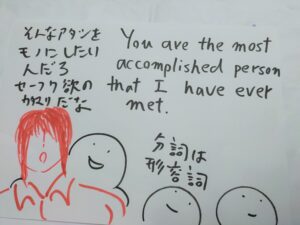 そんなアタシを
モノにしたい
んだろ
セーフク欲の
カタマリだな
You are the most
accomplished person
that I have ever
met.
分詞は
形容詞